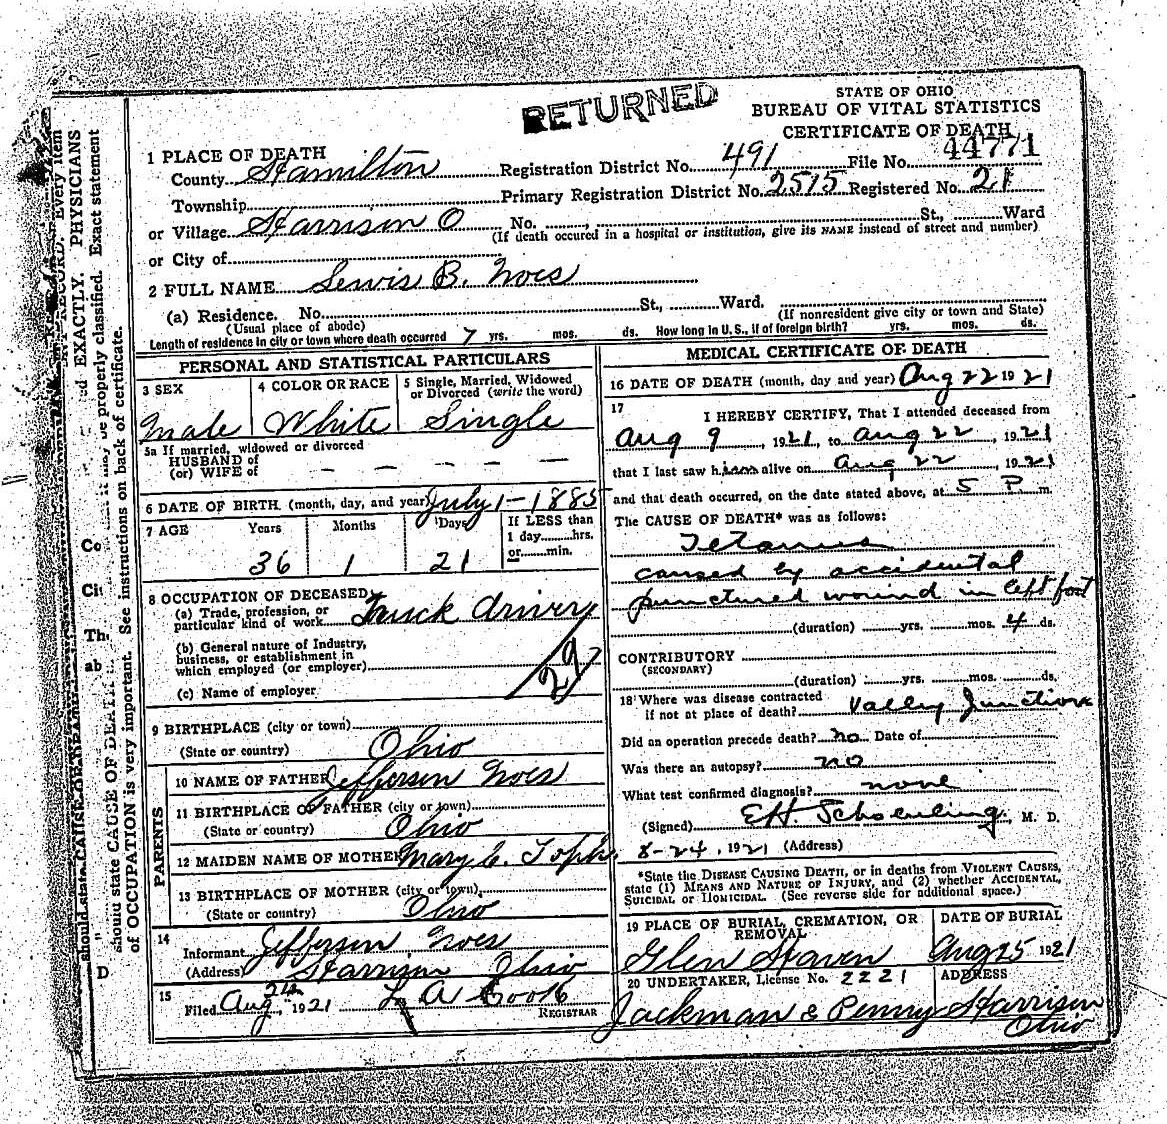 RETURNED
STATE OF OHIO
BUREAU OF VITAL STATISTICS
CERTIFICATE OF DEATH
1 PLACE OF DEATH
County Hamilton Registration District No. 491 File No. 44771
Township Primary Registration District No. 2515 Registered No. 21
or Village Harrison O No. , St., Ward
(If death occured in a hospital or institution, give its NAME instead of street and number)
or City of
2 FULL NAME Lewis B. Noes
(a) Residence. No. St., Ward.
(Usual place of abode) (If nonresident give city or town and State)
Length of residence in city or town where death occurred 7 yrs. mos. ds. How long in U. S., if of foreign birth? yrs. mos. ds.
PERSONAL AND STATISTICAL PARTICULARS
3 SEX
Male
4 COLOR OR RACE
White
5 Single, Married, Widowed
or Divorced (write the word)
Single
5a If married, widowed or divorced
HUSBAND of
(or) WIFE of – – – – –
6 DATE OF BIRTH (month, day, and year) July 1 - 1885
7 AGE Years Months Days If LESS than
1 day hrs.
or min.
36 1 21
8 OCCUPATION OF DECEASED
(a) Trade, profession, or
particular kind of work Truck driver
(b) General nature of Industry,
business, or establishment in
which employed (or employer)
(c) Name of employer
9 BIRTHPLACE (city or town)
(State or country) Ohio
PARENTS
10 NAME OF FATHER Jefferson Noes
11 BIRTHPLACE OF FATHER (city or town)
(State or country) Ohio
12 MAIDEN NAME OF MOTHER Mary C.
13 BIRTHPLACE OF MOTHER (city or town)
(State or country) Ohio
14
Informant Jefferson Noes
(Address) Harrison Ohio
15
Filed Aug 24, 1921 L A Cook
REGISTRAR
MEDICAL CERTIFICATE OF DEATH
16 DATE OF DEATH (month, day and year) Aug 22 1921
17
I HEREBY CERTIFY, That I attended deceased from
Aug 9, 1921, to Aug 22, 1921
that I last saw him alive on Aug 22, 1921
and that death occurred, on the date stated above, at 5 P m.
The CAUSE OF DEATH* was as follows:
Tetanus
caused by accidental
punctured wound in left foot
(duration) yrs. mos. 4 ds.
CONTRIBUTORY
(SECONDARY)
(duration) yrs. mos. ds.
18 Where was disease contracted
if not at place of death? Valley Junction
Did an operation precede death? no Date of
Was there an autopsy? no
What test confirmed diagnosis? none
(Signed) EH , M. D.
8-24, 1921 (Address)
*State the DISEASE CAUSING DEATH, or in deaths from VIOLENT CAUSES,
state (1) MEANS AND NATURE OF INJURY, and (2) whether ACCIDENTAL,
SUICIDAL or HOMICIDAL. (See reverse side for additional space.)
19 PLACE OF BURIAL, CREMATION, OR
REMOVAL
Glen Haven
DATE OF BURIAL
Aug 25 1921
20 UNDERTAKER, License No. 2221
Jackman & Penny
ADDRESS
Harrison
Ohio
RECORD. Every item
EXACTLY. PHYSICIANS
be properly classified. Exact statement
should state CAUSE OF DEATH
of OCCUPATION is very important. See instructions on back of certificate.